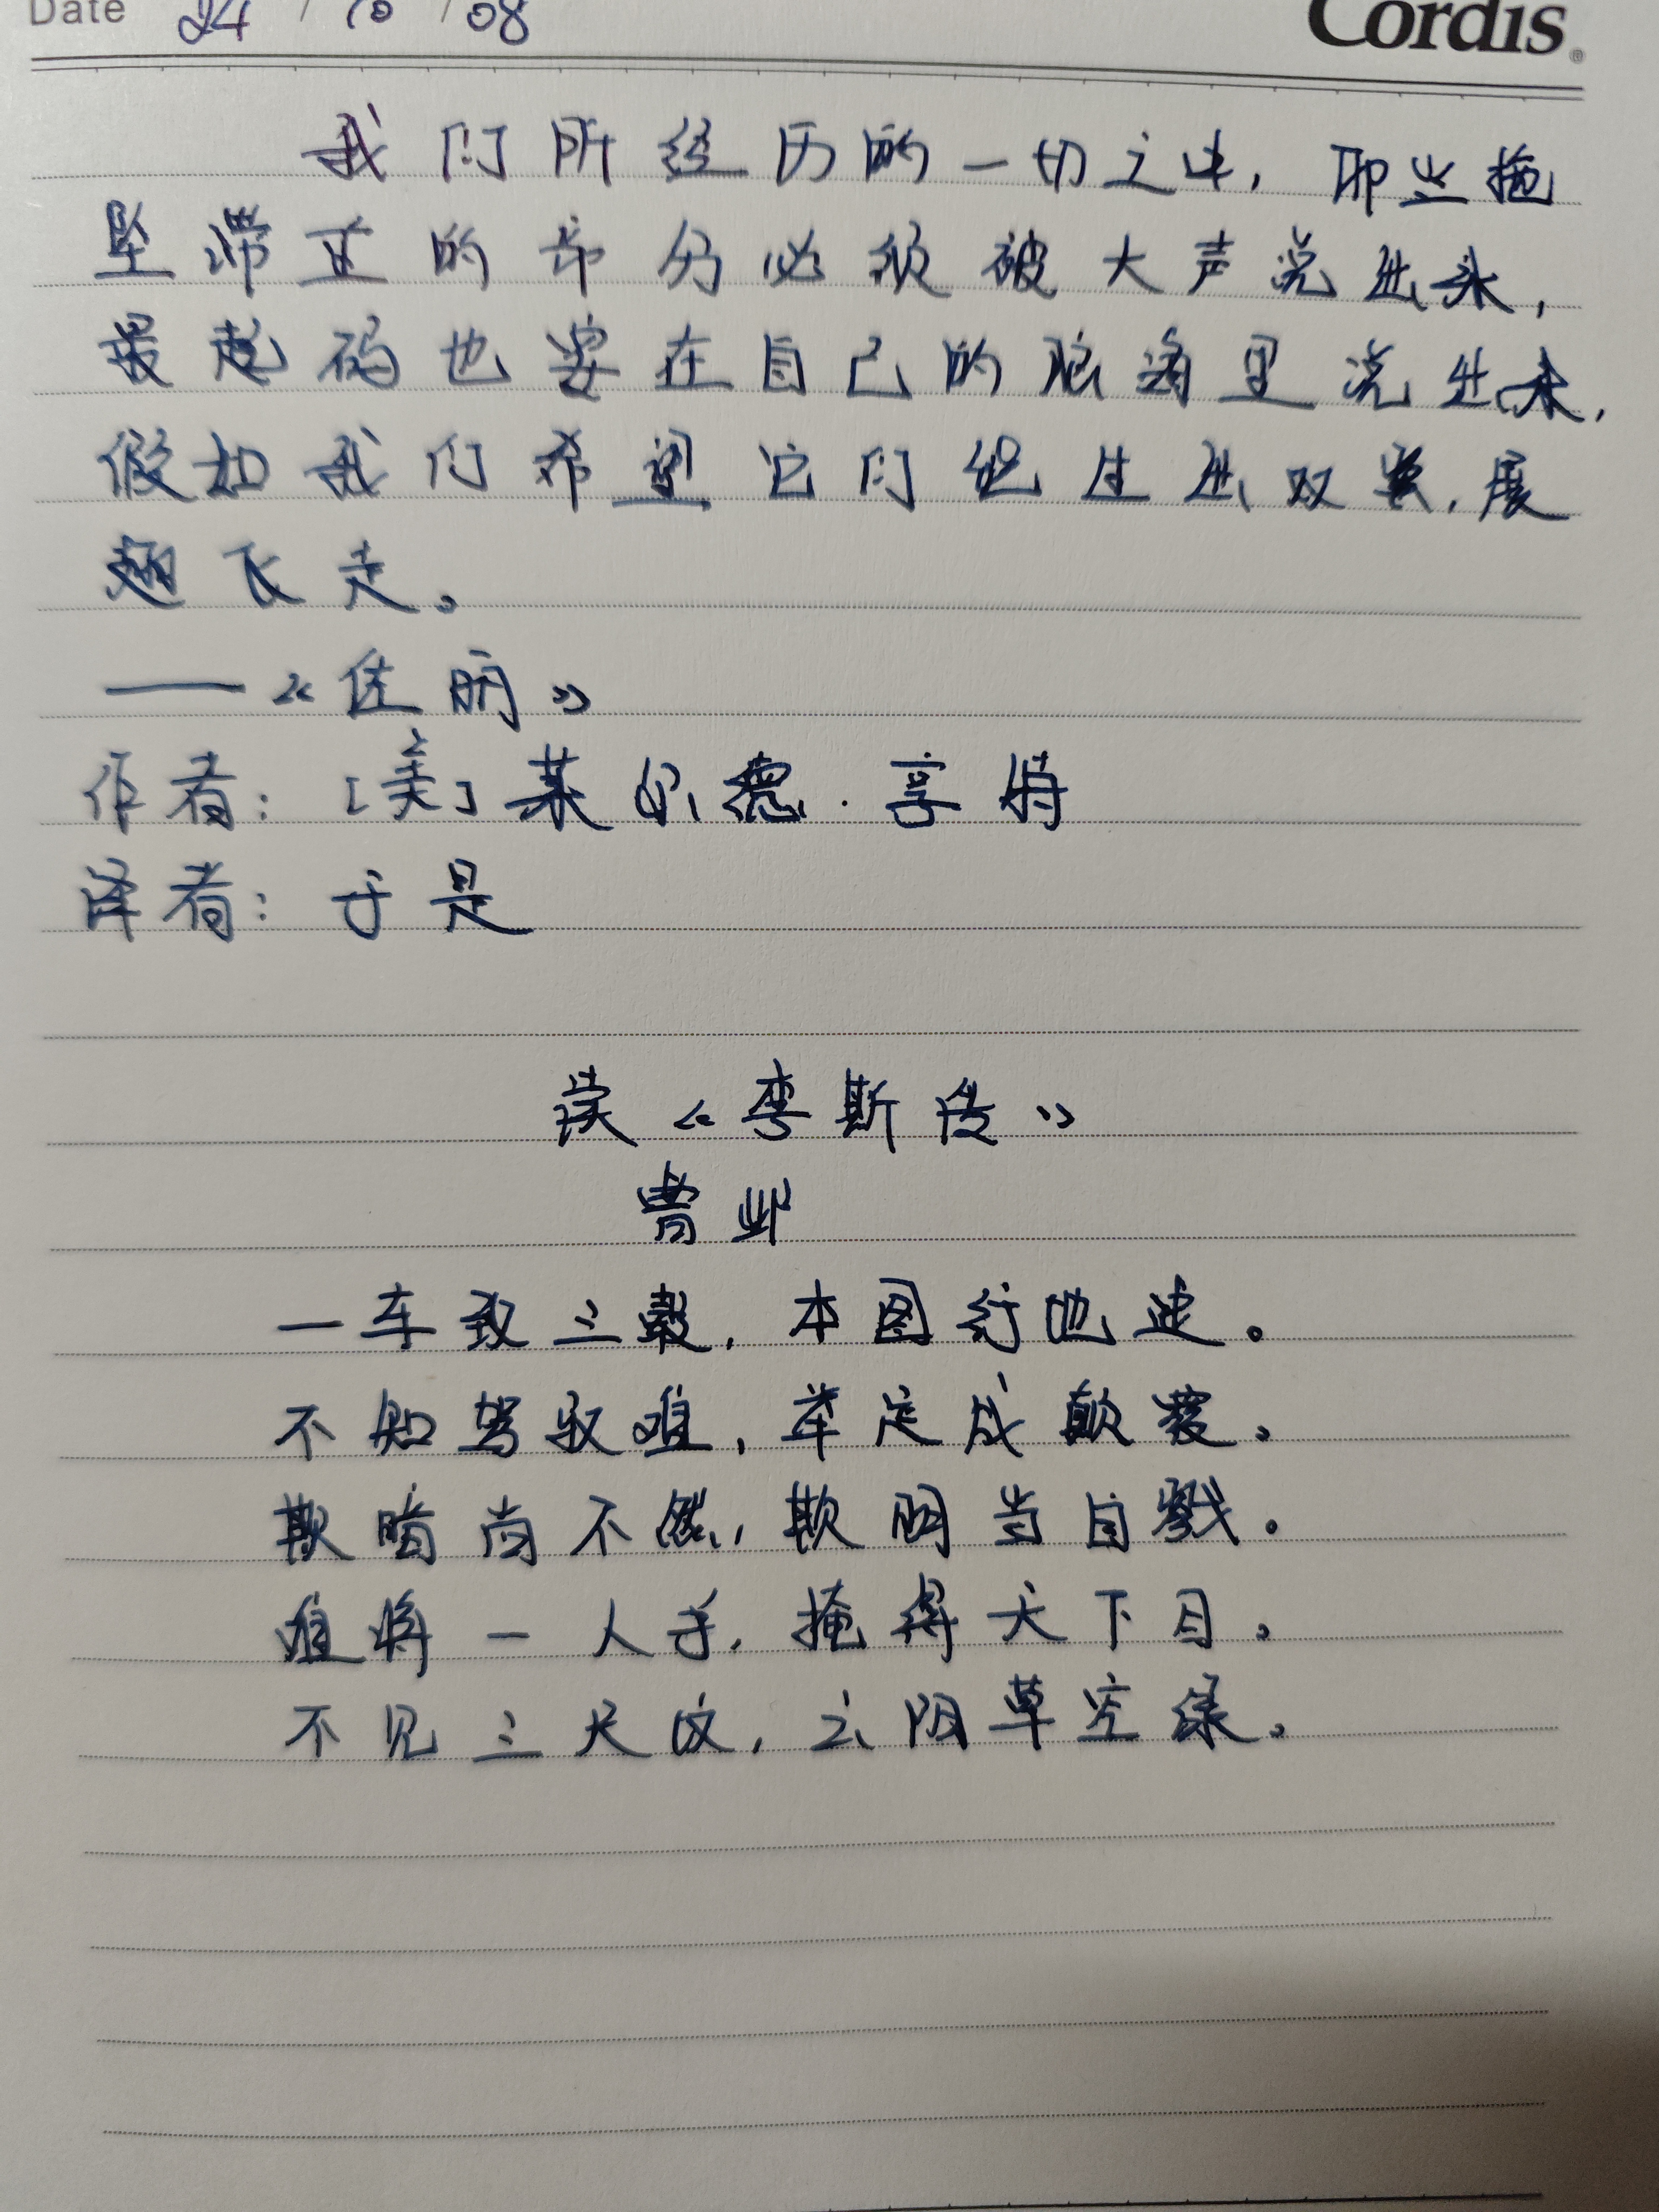 Date 24 / 10 / 08
Cordis®
我们所经历的一切之中，那些拖
坠滞重的部分必须被大声说出来，
最起码也要在自己的脑海里说出来，
假如我们希望它们能生出双翼，展
翅飞走。
——《佳明》
作者：[美]莱尔德·亨特
译者：于是
读《李斯传》
曹邺
一车致三毂，本图行地速。
不知驾驭难，举足成颠覆。
欺暗尚不然，欺明当自戮。
难将一人手，掩得天下目。
不见三尺坟，云阳草空绿。